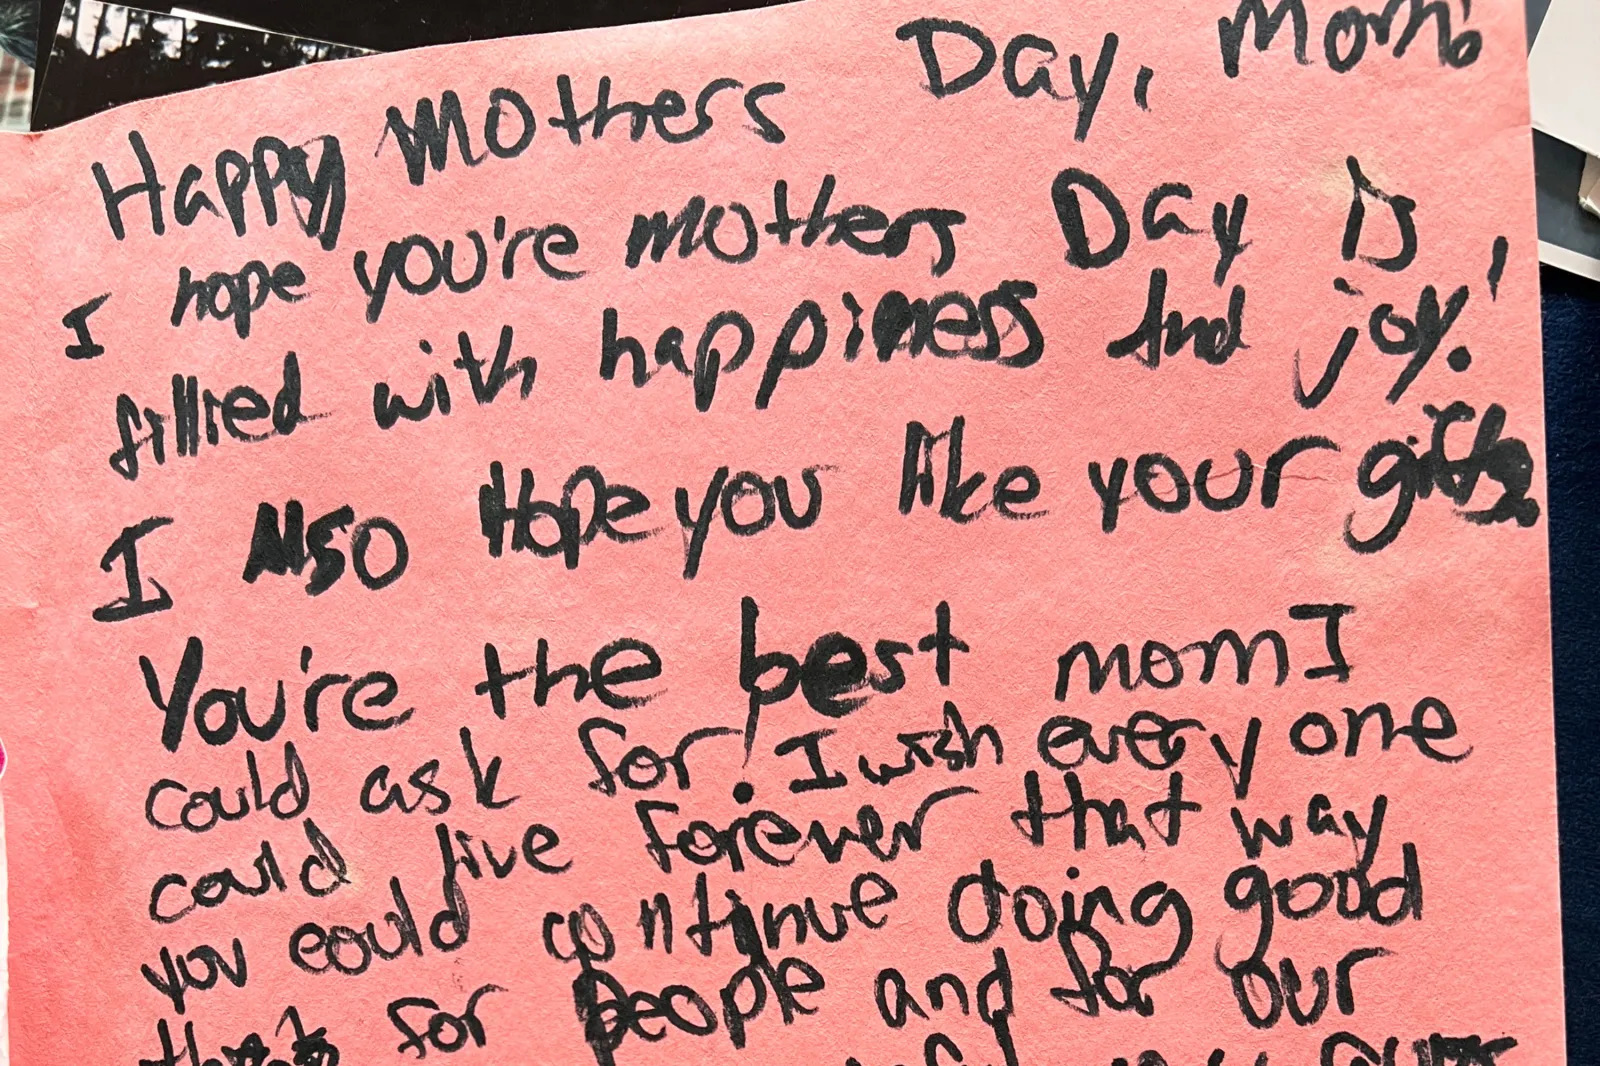 Happy Mothers Day, Mom!
I hope you're mothers Day Is
fillied with happiness And joy!
I Also Hope you like your gifts
You're the best mom I
could ask for! I wish every one
could live forever that way
you could continue doing good
for people and for our